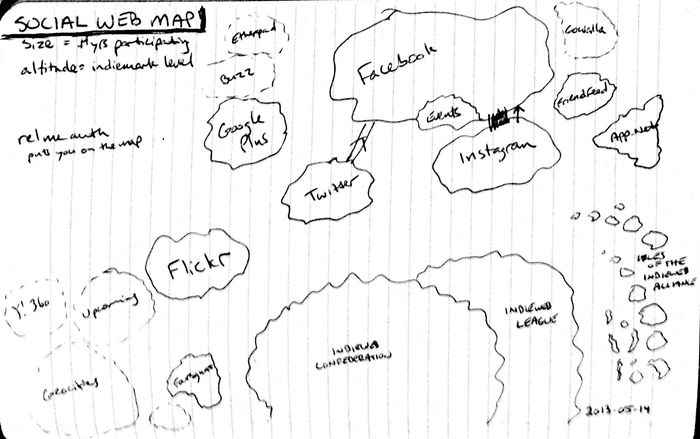 SOCIAL WEB MAP
Size = #yrs participating
altitude = indiemark level
relmeauth
puts you on the map
Etherpad
Buzz
Google
Plus
Facebook
Events
Instagram
Twitter
Gowalla
FriendFeed
App.Net
Flickr
Y! 360
Upcoming
Geocities
Foursquare
INDIEWEB
CONFEDERATION
INDIEWEB
LEAGUE
ISLES
OF THE
INDIEWEB
ALLIANCE
2013-05-14